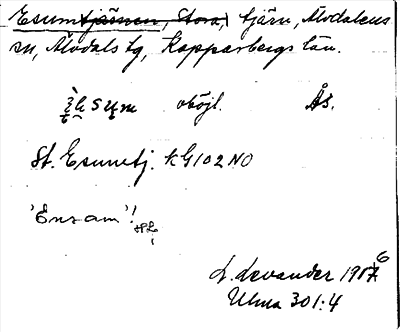 Esumtjärnen, Stora, tjärn, Älvdalens
sn, Älvdals tg, Kopparbergs län.
oböjl. Ås.
St. Esumtj. kG102NO
'Ensam'!
L. Levander 1906
Ulma 301:4